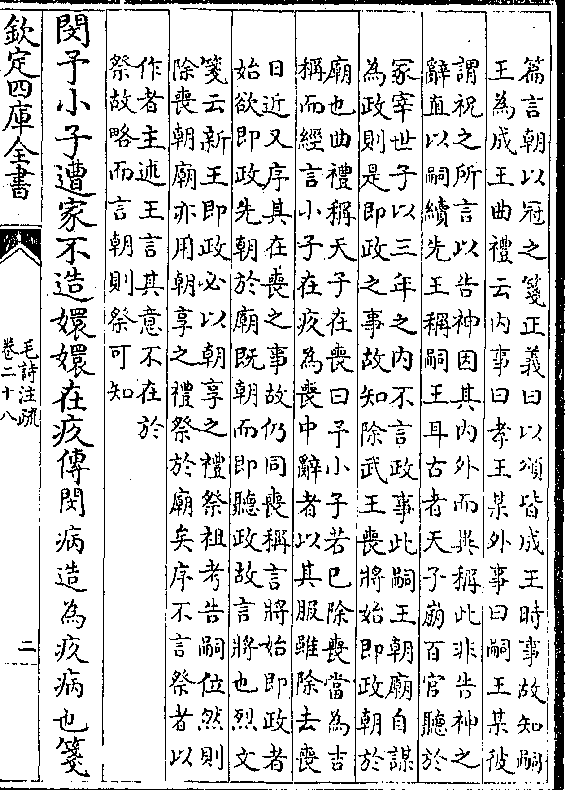 篇言朝以冠之箋正義曰以頌皆成王時事故知嗣
王為成王曲禮云内事曰孝王某外事曰嗣王某彼
謂祝之所言以告神因其内外而異稱此非告神之
辭直以嗣續先王稱嗣王耳古者天子崩百官聽於
冡宰世子以三年之内不言政事此嗣王朝廟自謀
為政則是即政之事故知除武王喪將始即政朝於
廟也曲禮稱天子在喪曰予小子若已除喪當為吉
稱而經言小子在疚為喪中辭者以其服雖除去喪
日近又序其在喪之事故仍同喪稱言將始即政者
始欲即政先朝於廟既朝而即聽政故言將也烈文
箋云新王即政必以朝享之禮祭祖考告嗣位然則
除喪朝廟亦用朝享之禮祭於廟矣序不言祭者以
作者主述王言其意不在於
祭故略而言朝則祭可知
閔予小子遭家不造嬛嬛在疚傳閔病造為疚病也箋
欽定四庫全書
毛詩注疏
卷二十八
二